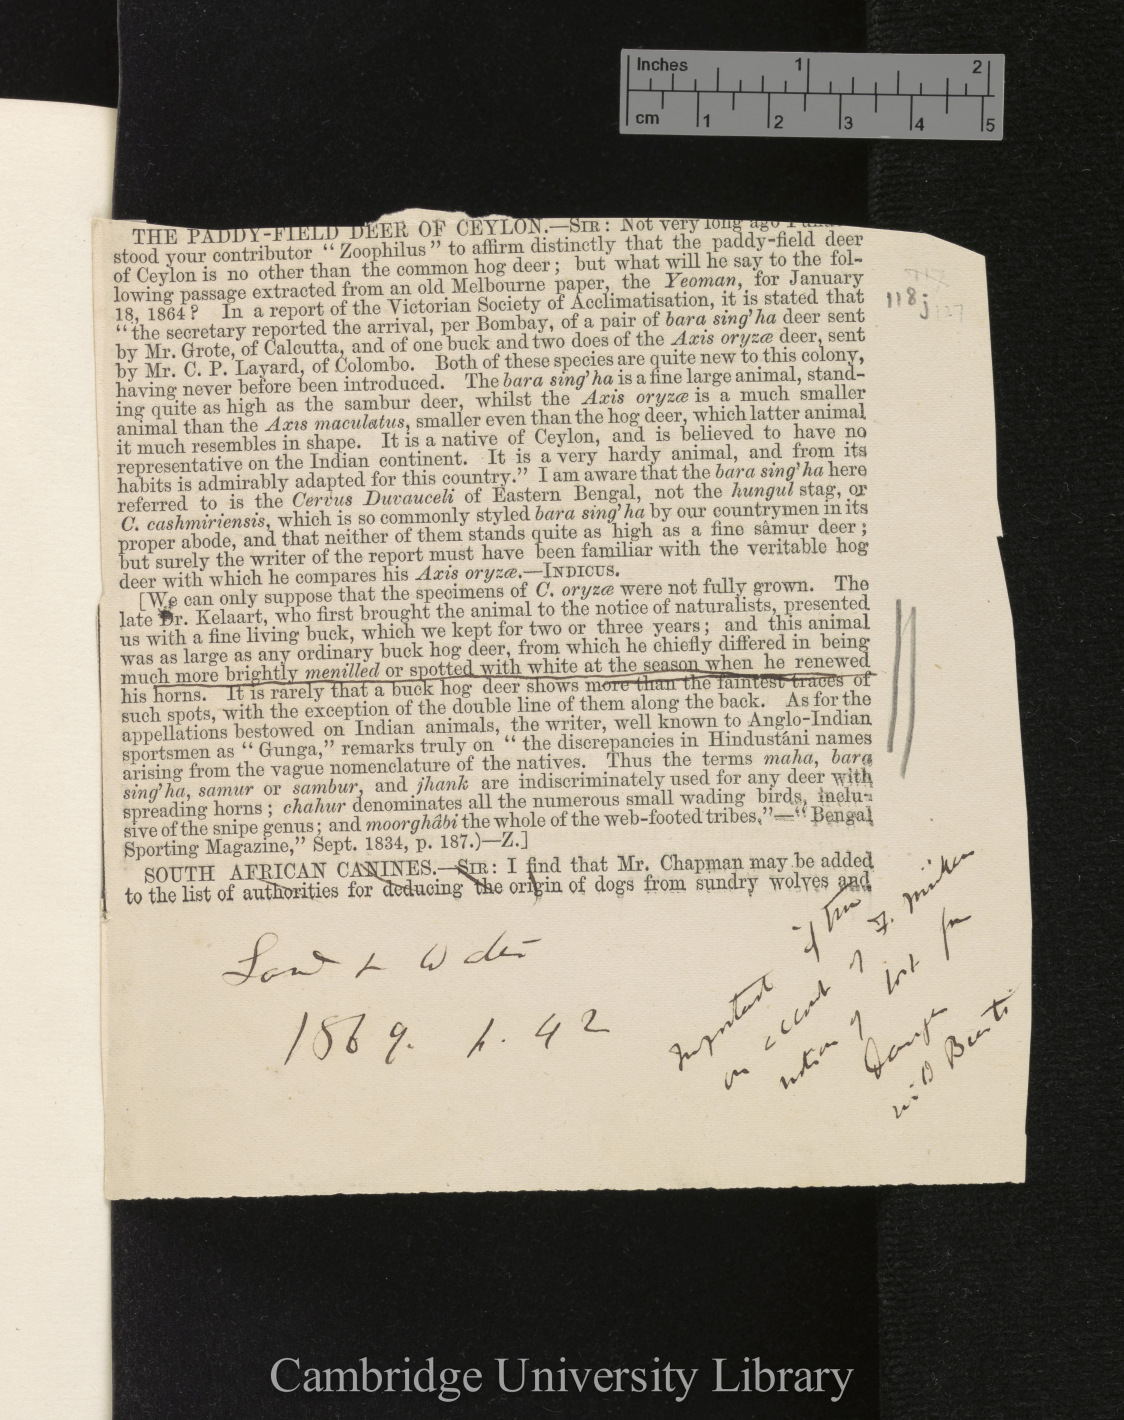 Inches 1 2
cm 1 2 3 4 5
THE PADDY-FIELD DEER OF CEYLON.—SIR: Not very long ago I
stood your contributor "Zoophilus" to affirm distinctly that the paddy-field deer
of Ceylon is no other than the common hog deer; but what will he say to the fol-
lowing passage extracted from an old Melbourne paper, the Yeoman, for January
18, 1864? In a report of the Victorian Society of Acclimatisation, it is stated that
"the secretary reported the arrival, per Bombay, of a pair of bara sing'ha deer sent
by Mr. Grote, of Calcutta, and of one buck and two does of the Axis oryzæ deer, sent
by Mr. C. P. Layard, of Colombo. Both of these species are quite new to this colony,
having never before been introduced. The bara sing'ha is a fine large animal, stand-
ing quite as high as the sambur deer, whilst the Axis oryzæ is a much smaller
animal than the Axis maculatus, smaller even than the hog deer, which latter animal
it much resembles in shape. It is a native of Ceylon, and is believed to have no
representative on the Indian continent. It is a very hardy animal, and from its
habits is admirably adapted for this country." I am aware that the bara sing'ha here
referred to is the Cervus Duvauceli of Eastern Bengal, not the hungul stag, or
C. cashmiriensis, which is so commonly styled bara sing'ha by our countrymen in its
proper abode, and that neither of them stands quite as high as a fine sâmur deer;
but surely the writer of the report must have been familiar with the veritable hog
deer with which he compares his Axis oryzæ.—INDICUS.
[We can only suppose that the specimens of C. oryzæ were not fully grown. The
late Dr. Kelaart, who first brought the animal to the notice of naturalists, presented
us with a fine living buck, which we kept for two or three years; and this animal
was as large as any ordinary buck hog deer, from which he chiefly differed in being
much more brightly menilled or spotted with white at the season when he renewed
his horns. It is rarely that a buck hog deer shows more than the faintest traces of
such spots, with the exception of the double line of them along the back. As for the
appellations bestowed on Indian animals, the writer, well known to Anglo-Indian
sportsmen as "Gunga," remarks truly on "the discrepancies in Hindustáni names
arising from the vague nomenclature of the natives. Thus the terms maha, bara
sing'ha, samur or sambur, and jhank are indiscriminately used for any deer with
spreading horns; chahur denominates all the numerous small wading birds, inclu-
sive of the snipe genus; and moorghâbi the whole of the web-footed tribes,"—"Bengal
Sporting Magazine," Sept. 1834, p. 187.)—Z.]
SOUTH AFRICAN CANINES.—SIR: I find that Mr. Chapman may be added
to the list of authorities for deducing the origin of dogs from sundry wolves and
118j
Land & Water
1869. p. 42
Important if true
on account of F. Müller
notion of
Danger
Cambridge University Library